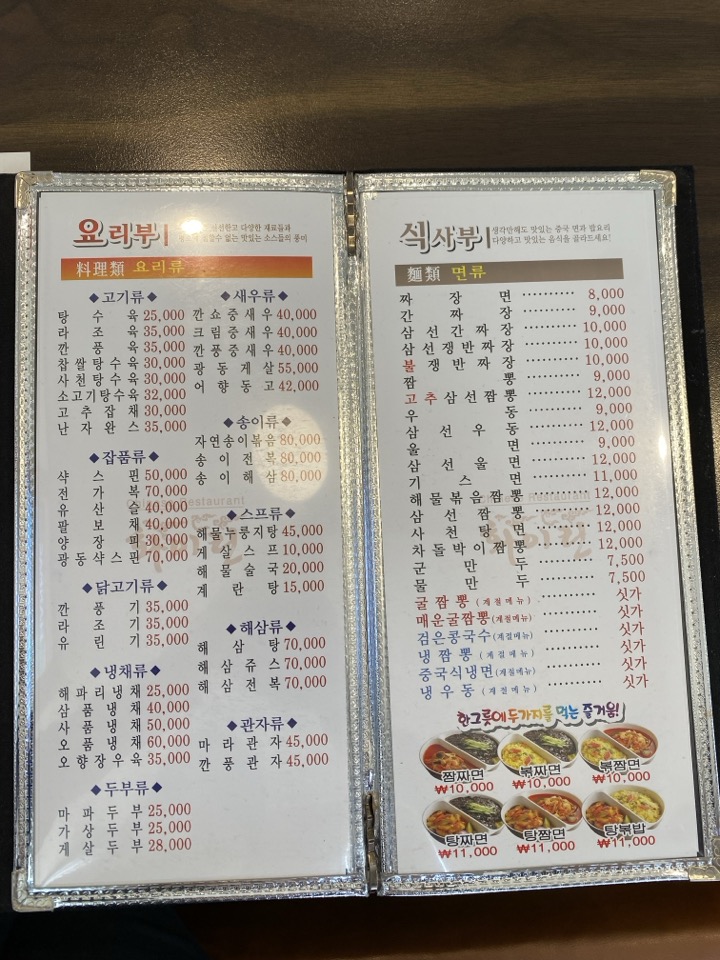 요리부
신선한고 다양한 재료들과
없는 맛있는 소스들의 풍미
料理類 요리류
◆고기류◆
탕수육 25,000
라조육 35,000
깐풍육 35,000
찹쌀탕수육 30,000
사천탕수육 30,000
소고기탕수육 32,000
고추잡채 30,000
난자완스 35,000
◆잡품류◆
샥스핀 50,000
전가복 70,000
유산슬 40,000
팔보채 40,000
양장피 30,000
광동샥스핀 70,000
◆닭고기류◆
깐풍기 35,000
라조기 35,000
유린기 35,000
◆냉채류◆
해파리냉채 25,000
삼품냉채 40,000
사품냉채 50,000
오품냉채 60,000
오향장우육 35,000
◆두부류◆
마파두부 25,000
가상두부 25,000
게살두부 28,000
◆새우류◆
깐쇼중새우 40,000
크림중새우 40,000
깐풍중새우 40,000
광동게살 55,000
어향동고 42,000
◆송이류◆
자연송이볶음 80,000
송이전복 80,000
송이해삼 80,000
◆스프류◆
해물누룽지탕 45,000
게살스프 10,000
해물술국 20,000
계란탕 15,000
◆해삼류◆
해삼탕 70,000
해삼쥬스 70,000
해삼전복 70,000
◆관자류◆
마라관자 45,000
깐풍관자 45,000
식사부
생각만해도 맛있는 중국 면과 밥요리
다양하고 맛있는 음식을 골라드세요!
麵類 면류
짜장면 ·········· 8,000
간짜장 ·········· 9,000
삼선간짜장 ·········· 10,000
삼선쟁반짜장 ·········· 10,000
불쟁반짜장 ·········· 10,000
짬뽕 ·········· 9,000
고추삼선짬뽕 ·········· 12,000
우동 ·········· 9,000
삼선우동 ·········· 12,000
울면 ·········· 9,000
삼선울면 ·········· 12,000
기스면 ·········· 11,000
해물볶음짬뽕 ·········· 12,000
삼선짬뽕 ·········· 12,000
사천탕면 ·········· 12,000
차돌박이짬뽕 ·········· 12,000
군만두 ·········· 7,500
물만두 ·········· 7,500
굴짬뽕 (계절메뉴) ·········· 싯가
매운굴짬뽕 (계절메뉴) ·········· 싯가
검은콩국수 (계절메뉴) ·········· 싯가
냉짬뽕 (계절메뉴) ·········· 싯가
중국식냉면 (계절메뉴) ·········· 싯가
냉우동 (계절메뉴) ·········· 싯가
한그릇에 두가지를 먹는 즐거움!
짬짜면 볶짜면 볶짬면
₩10,000 ₩10,000 ₩10,000
탕짜면 탕짬면 탕볶밥
₩11,000 ₩11,000 ₩11,000